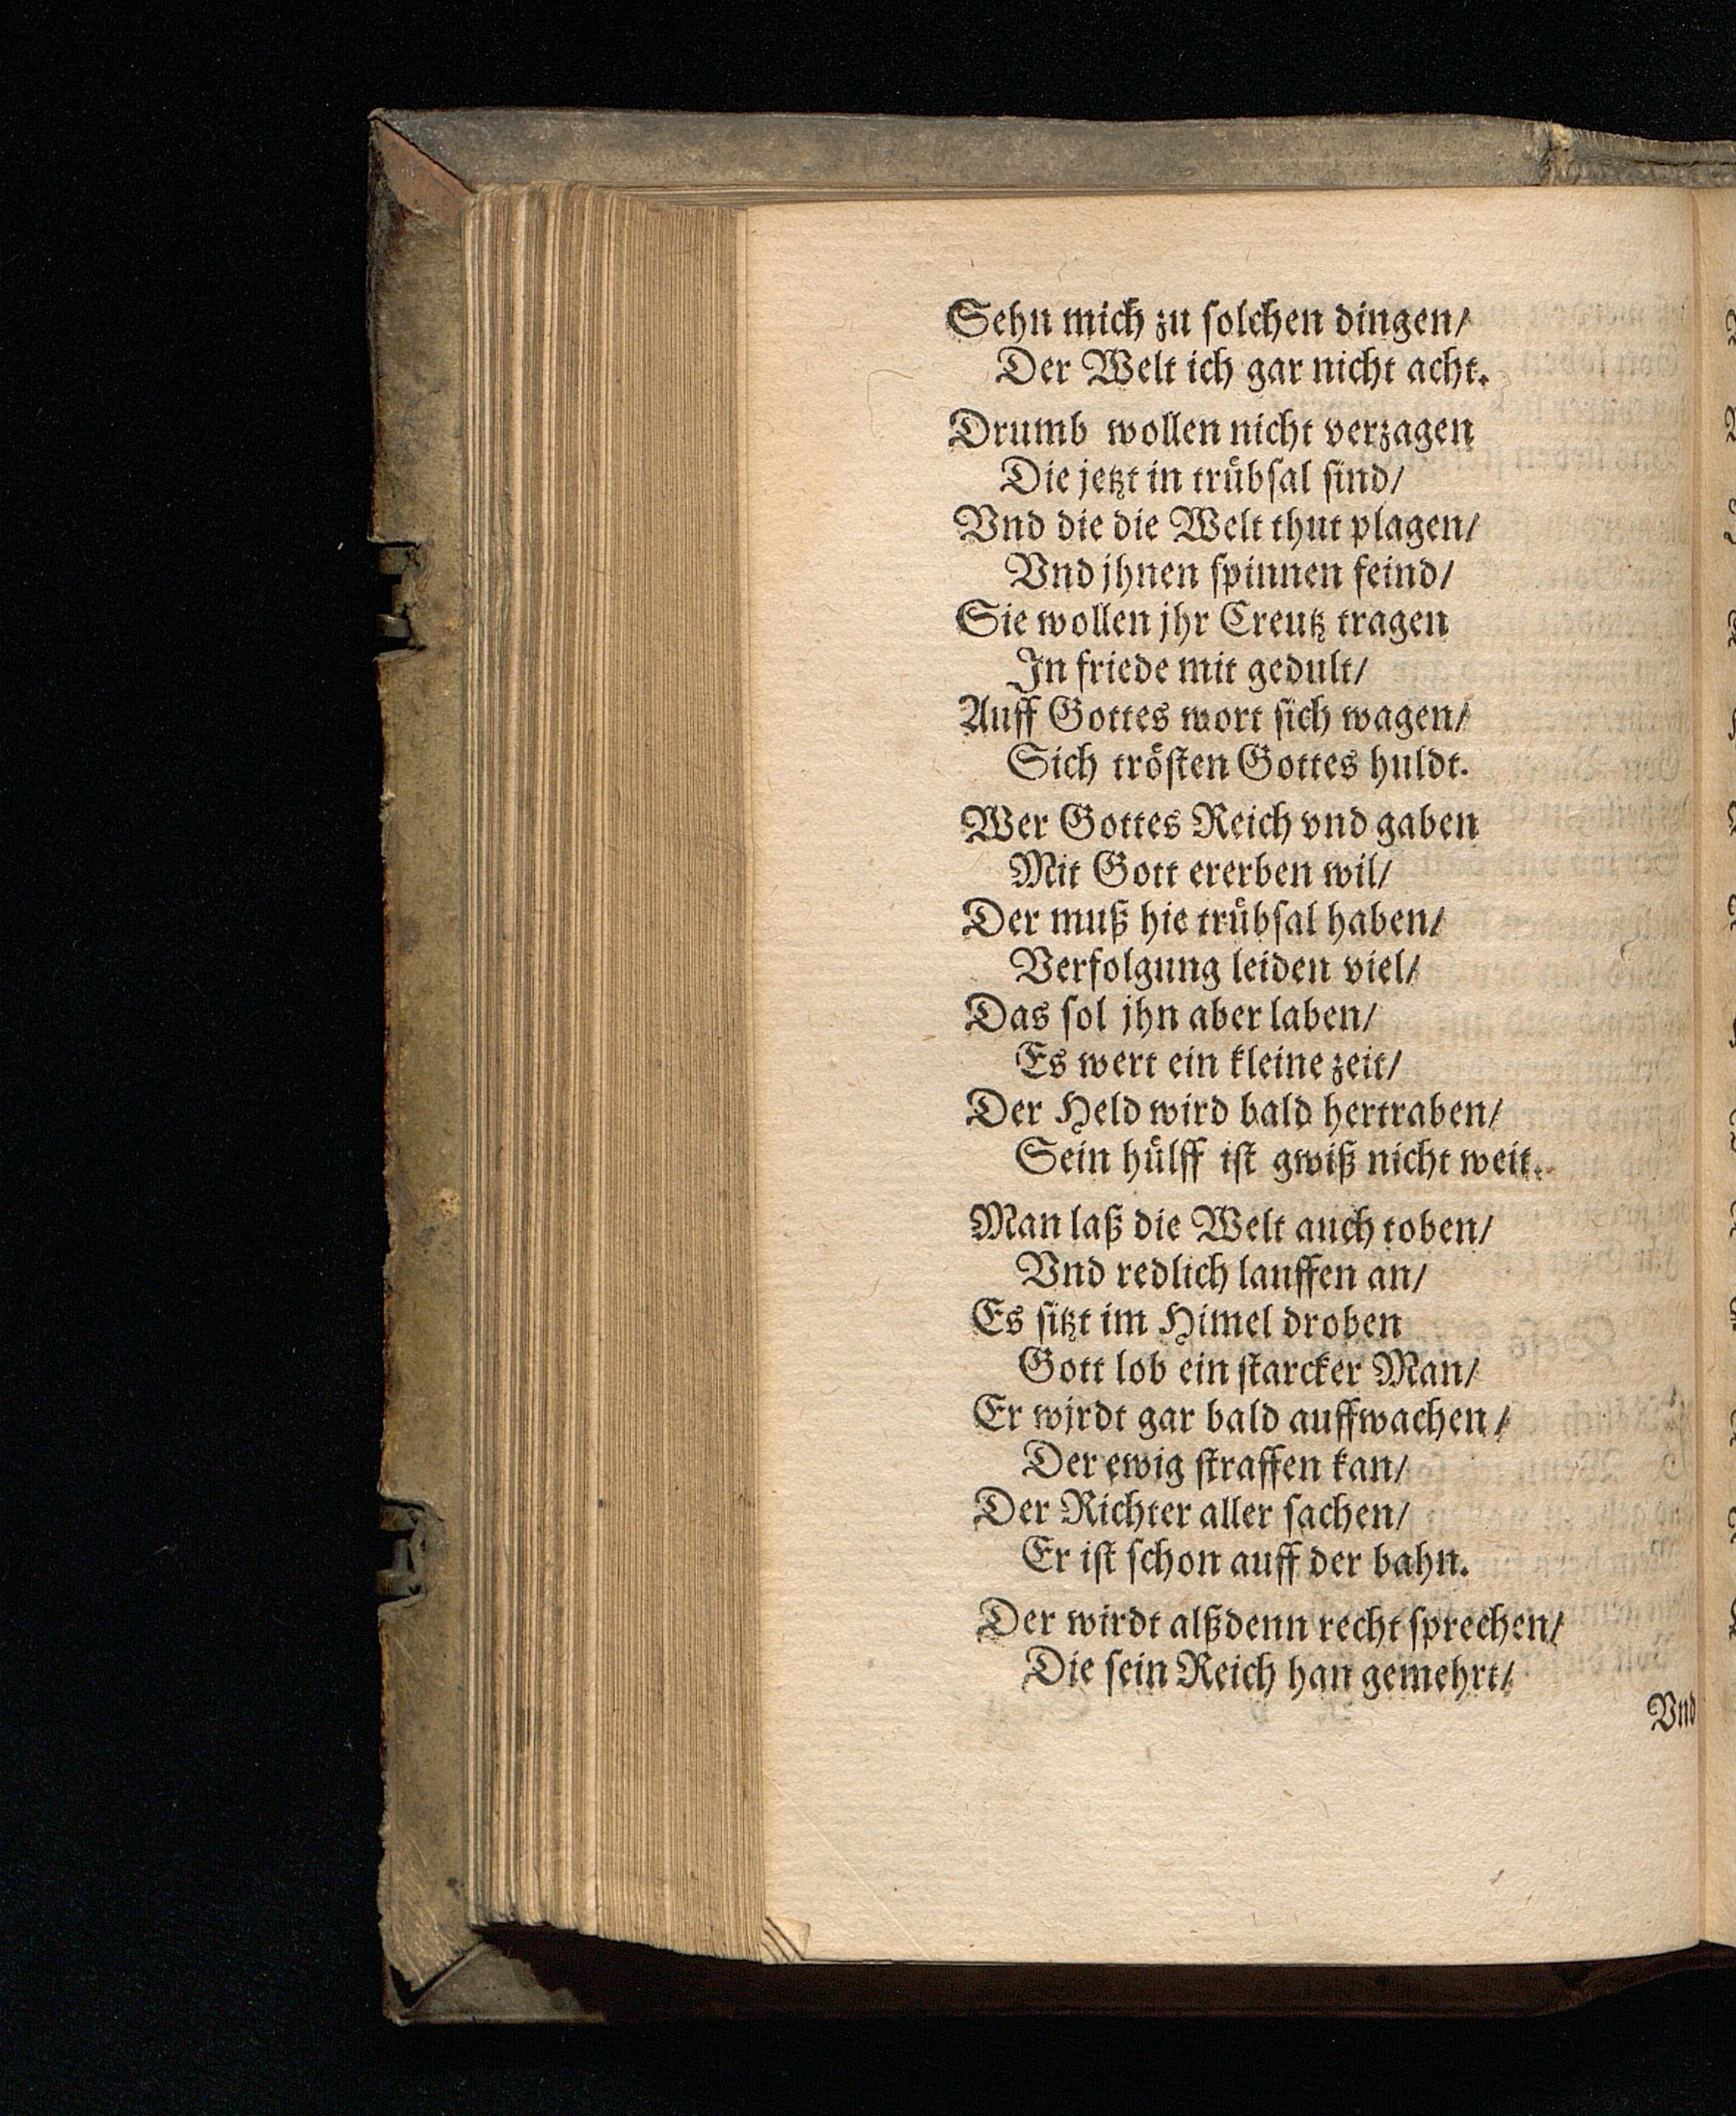 Sehn mich zu ſolchen dingen/
Der Welt ich gar nicht acht.
Drumb wollen nicht verzagen
Die jetzt in truͤbſal ſind/
Vnd die die Welt thut plagen/
Vnd jhnen ſpinnen feind/
Sie wollen jhr Creutz tragen
In friede mit gedult/
Auff Gottes wort ſich wagen/
Sich troͤſten Gottes huldt.
Wer Gottes Reich vnd gaben
Mit Gott ererben wil/
Der muß hie truͤbſal haben/
Verfolgung leiden viel/
Das ſol jhn aber laben/
Es wert ein kleine zeit/
Der Held wird bald hertraben/
Sein huͤlff iſt gwiß nicht weit.
Man laß die Welt auch toben/
Vnd redlich lauffen an/
Es ſitzt im Himel droben
Gott lob ein ſtarcker Man/
Er wirdt gar bald auffwachen/
Der ewig ſtraffen kan/
Der Richter aller ſachen/
Er iſt ſchon auff der bahn.
Der wirdt alßdenn recht ſprechen/
Die ſein Reich han gemehrt/
Vnd